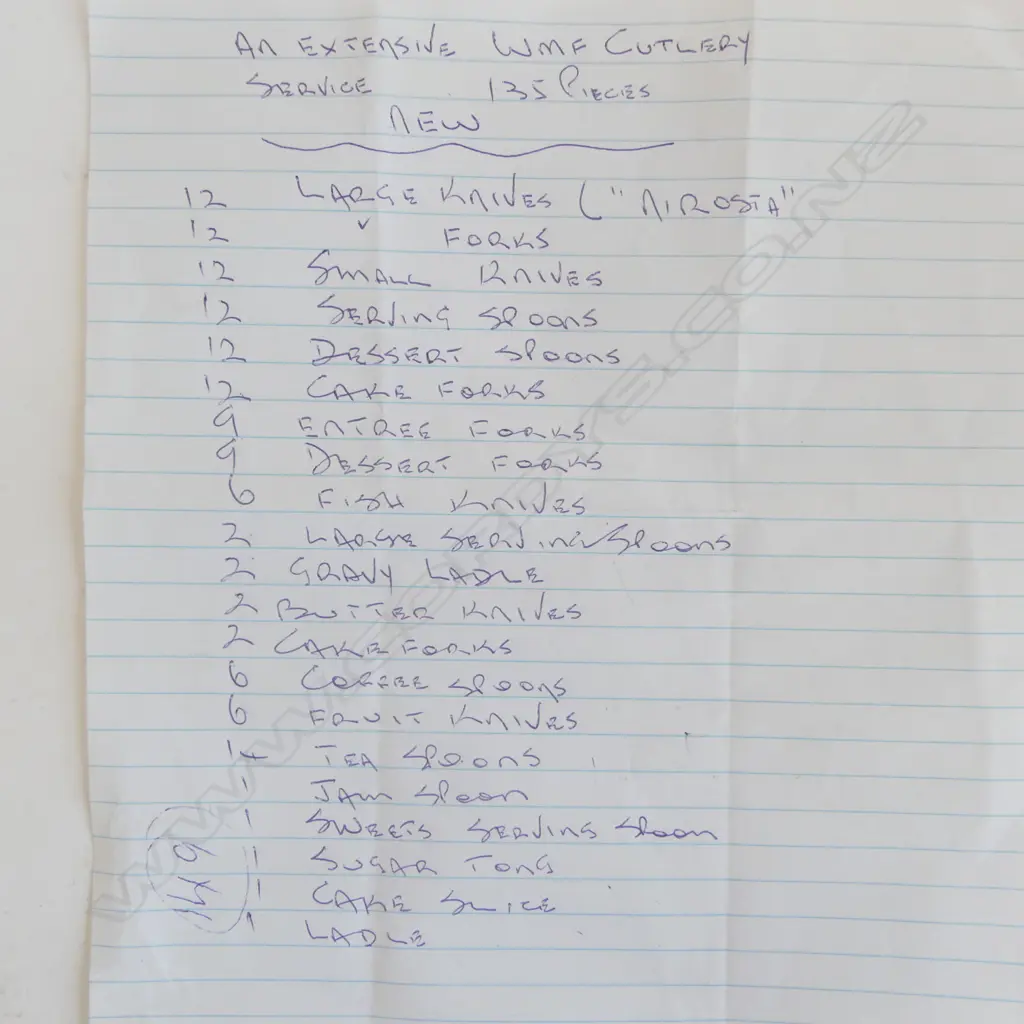 AN EXTENSIVE WMF CUTLERY
SERVICE 135 PIECES
NEW
12 LARGE KNIVES ("NIROSTA"
12 " FORKS
12 SMALL KNIVES
12 SERVING SPOONS
12 DESSERT SPOONS
12 CAKE FORKS
9 ENTREE FORKS
9 DESSERT FORKS
6 FISH KNIVES
2 LARGE SERVING SPOONS
2 GRAVY LADLE
2 BUTTER KNIVES
2 CAKE FORKS
6 COFFEE SPOONS
6 FRUIT KNIVES
14 TEA SPOONS
1 JAM SPOON
1 SWEETS SERVING SPOON
1 SUGAR TONG
1 CAKE SLICE
1 LADLE
149